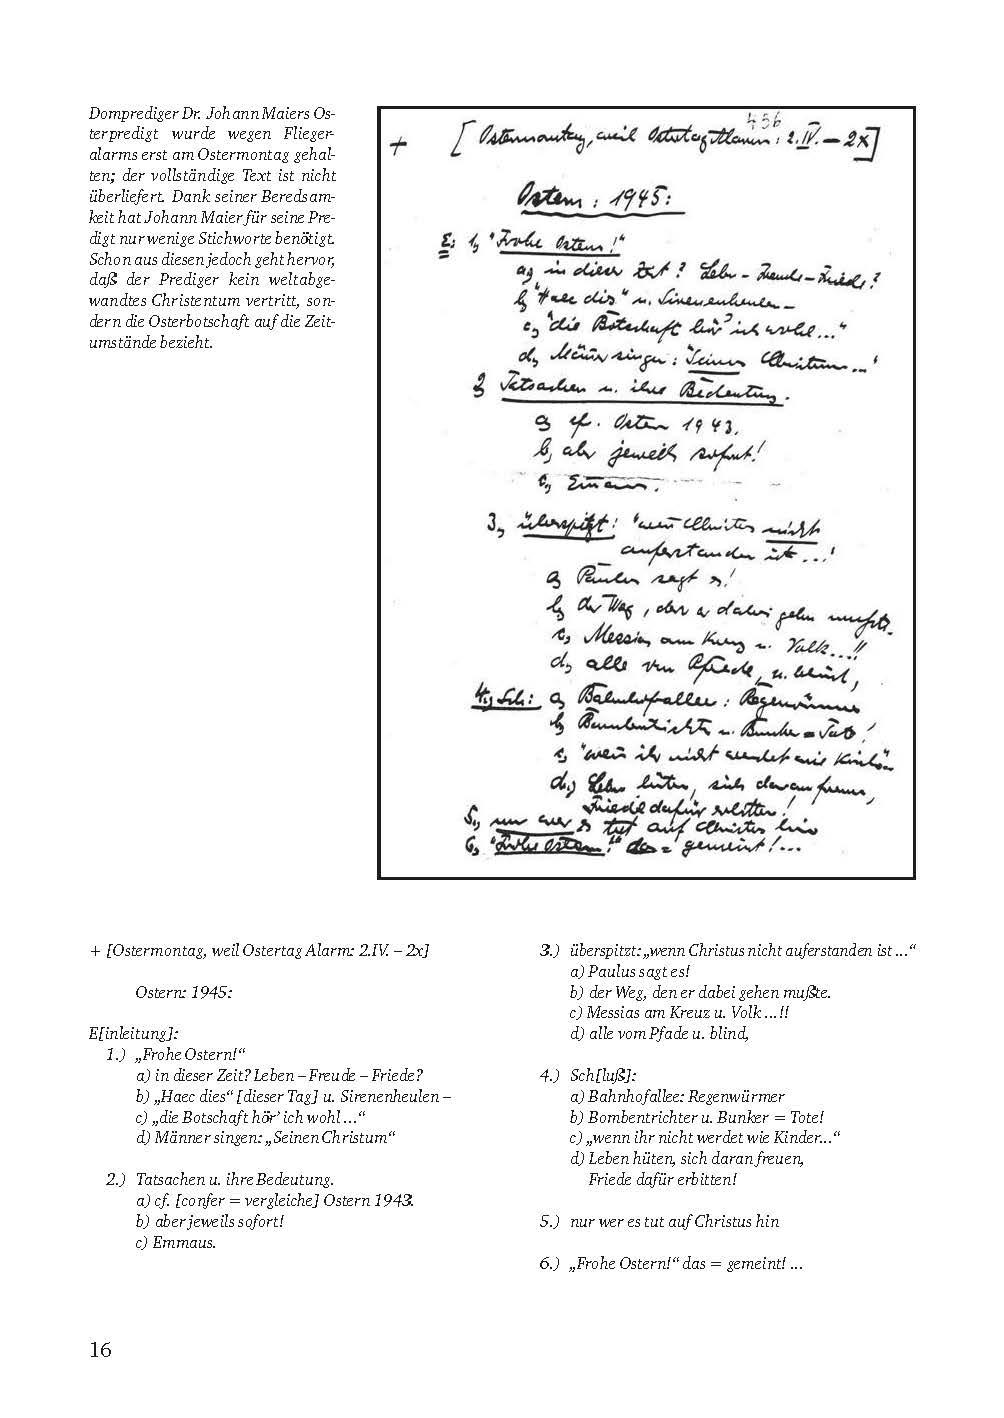 Domprediger Dr. Johann Maiers Os-
terpredigt wurde wegen Flieger-
alarms erst am Ostermontag gehal-
ten; der vollständige Text ist nicht
überliefert. Dank seiner Beredsam-
keit hat Johann Maier für seine Pre-
digt nur wenige Stichworte benötigt.
Schon aus diesen jedoch geht hervor,
daß der Prediger kein weltabge-
wandtes Christentum vertritt, son-
dern die Osterbotschaft auf die Zeit-
umstände bezieht.
456
+ [Ostermontag, weil Ostertag Alarm: 2.IV. – 2x]
Ostern: 1945:
E: 1, "Frohe Ostern!"
a, in dieser Zeit? Leben – Freude – Friede?
b, "Haec dies" u. Sirenenheulen –
c, "die Botschaft hör' ich wohl..."
d, Männer singen: "Seinen Christum..."
2, Tatsachen u. ihre Bedeutung.
a, cf. Ostern 1943.
b, aber jeweils sofort!
c, Emaus.
3, überspitzt: "wenn Christus nicht
auferstanden ist...!
a, Paulus sagt es!
b, der Weg, den er dabei gehen mußte.
c, Messias am Kreuz u. Volk...!!
d, alle vom Pfade, u. blind,
4, Sch: a, Bahnhofallee: Regenwürmer
b, Bombentrichter u. Bunker = Tote!
c, "wenn ihr nicht werdet wie Kinder..
d, Leben hüten, sich daran freuen,
Friede dafür erbitten!
5, nur wer es tut auf Christus hin
6, "Frohe Ostern!" das = gemeint!...
+ [Ostermontag, weil Ostertag Alarm: 2.IV. – 2x]
Ostern: 1945:
E[inleitung]:
1.) „Frohe Ostern!“
a) in dieser Zeit? Leben – Freude – Friede?
b) „Haec dies“ [dieser Tag] u. Sirenenheulen –
c) „die Botschaft hör’ ich wohl ...“
d) Männer singen: „Seinen Christum“
2.) Tatsachen u. ihre Bedeutung.
a) cf. [confer = vergleiche] Ostern 1943.
b) aber jeweils sofort!
c) Emmaus.
3.) überspitzt: „wenn Christus nicht auferstanden ist ...“
a) Paulus sagt es!
b) der Weg, den er dabei gehen mußte.
c) Messias am Kreuz u. Volk ...!!
d) alle vom Pfade u. blind,
4.) Sch[luß]:
a) Bahnhofallee: Regenwürmer
b) Bombentrichter u. Bunker = Tote!
c) „wenn ihr nicht werdet wie Kinder...“
d) Leben hüten, sich daran freuen,
Friede dafür erbitten!
5.) nur wer es tut auf Christus hin
6.) „Frohe Ostern!“ das = gemeint! ...
16